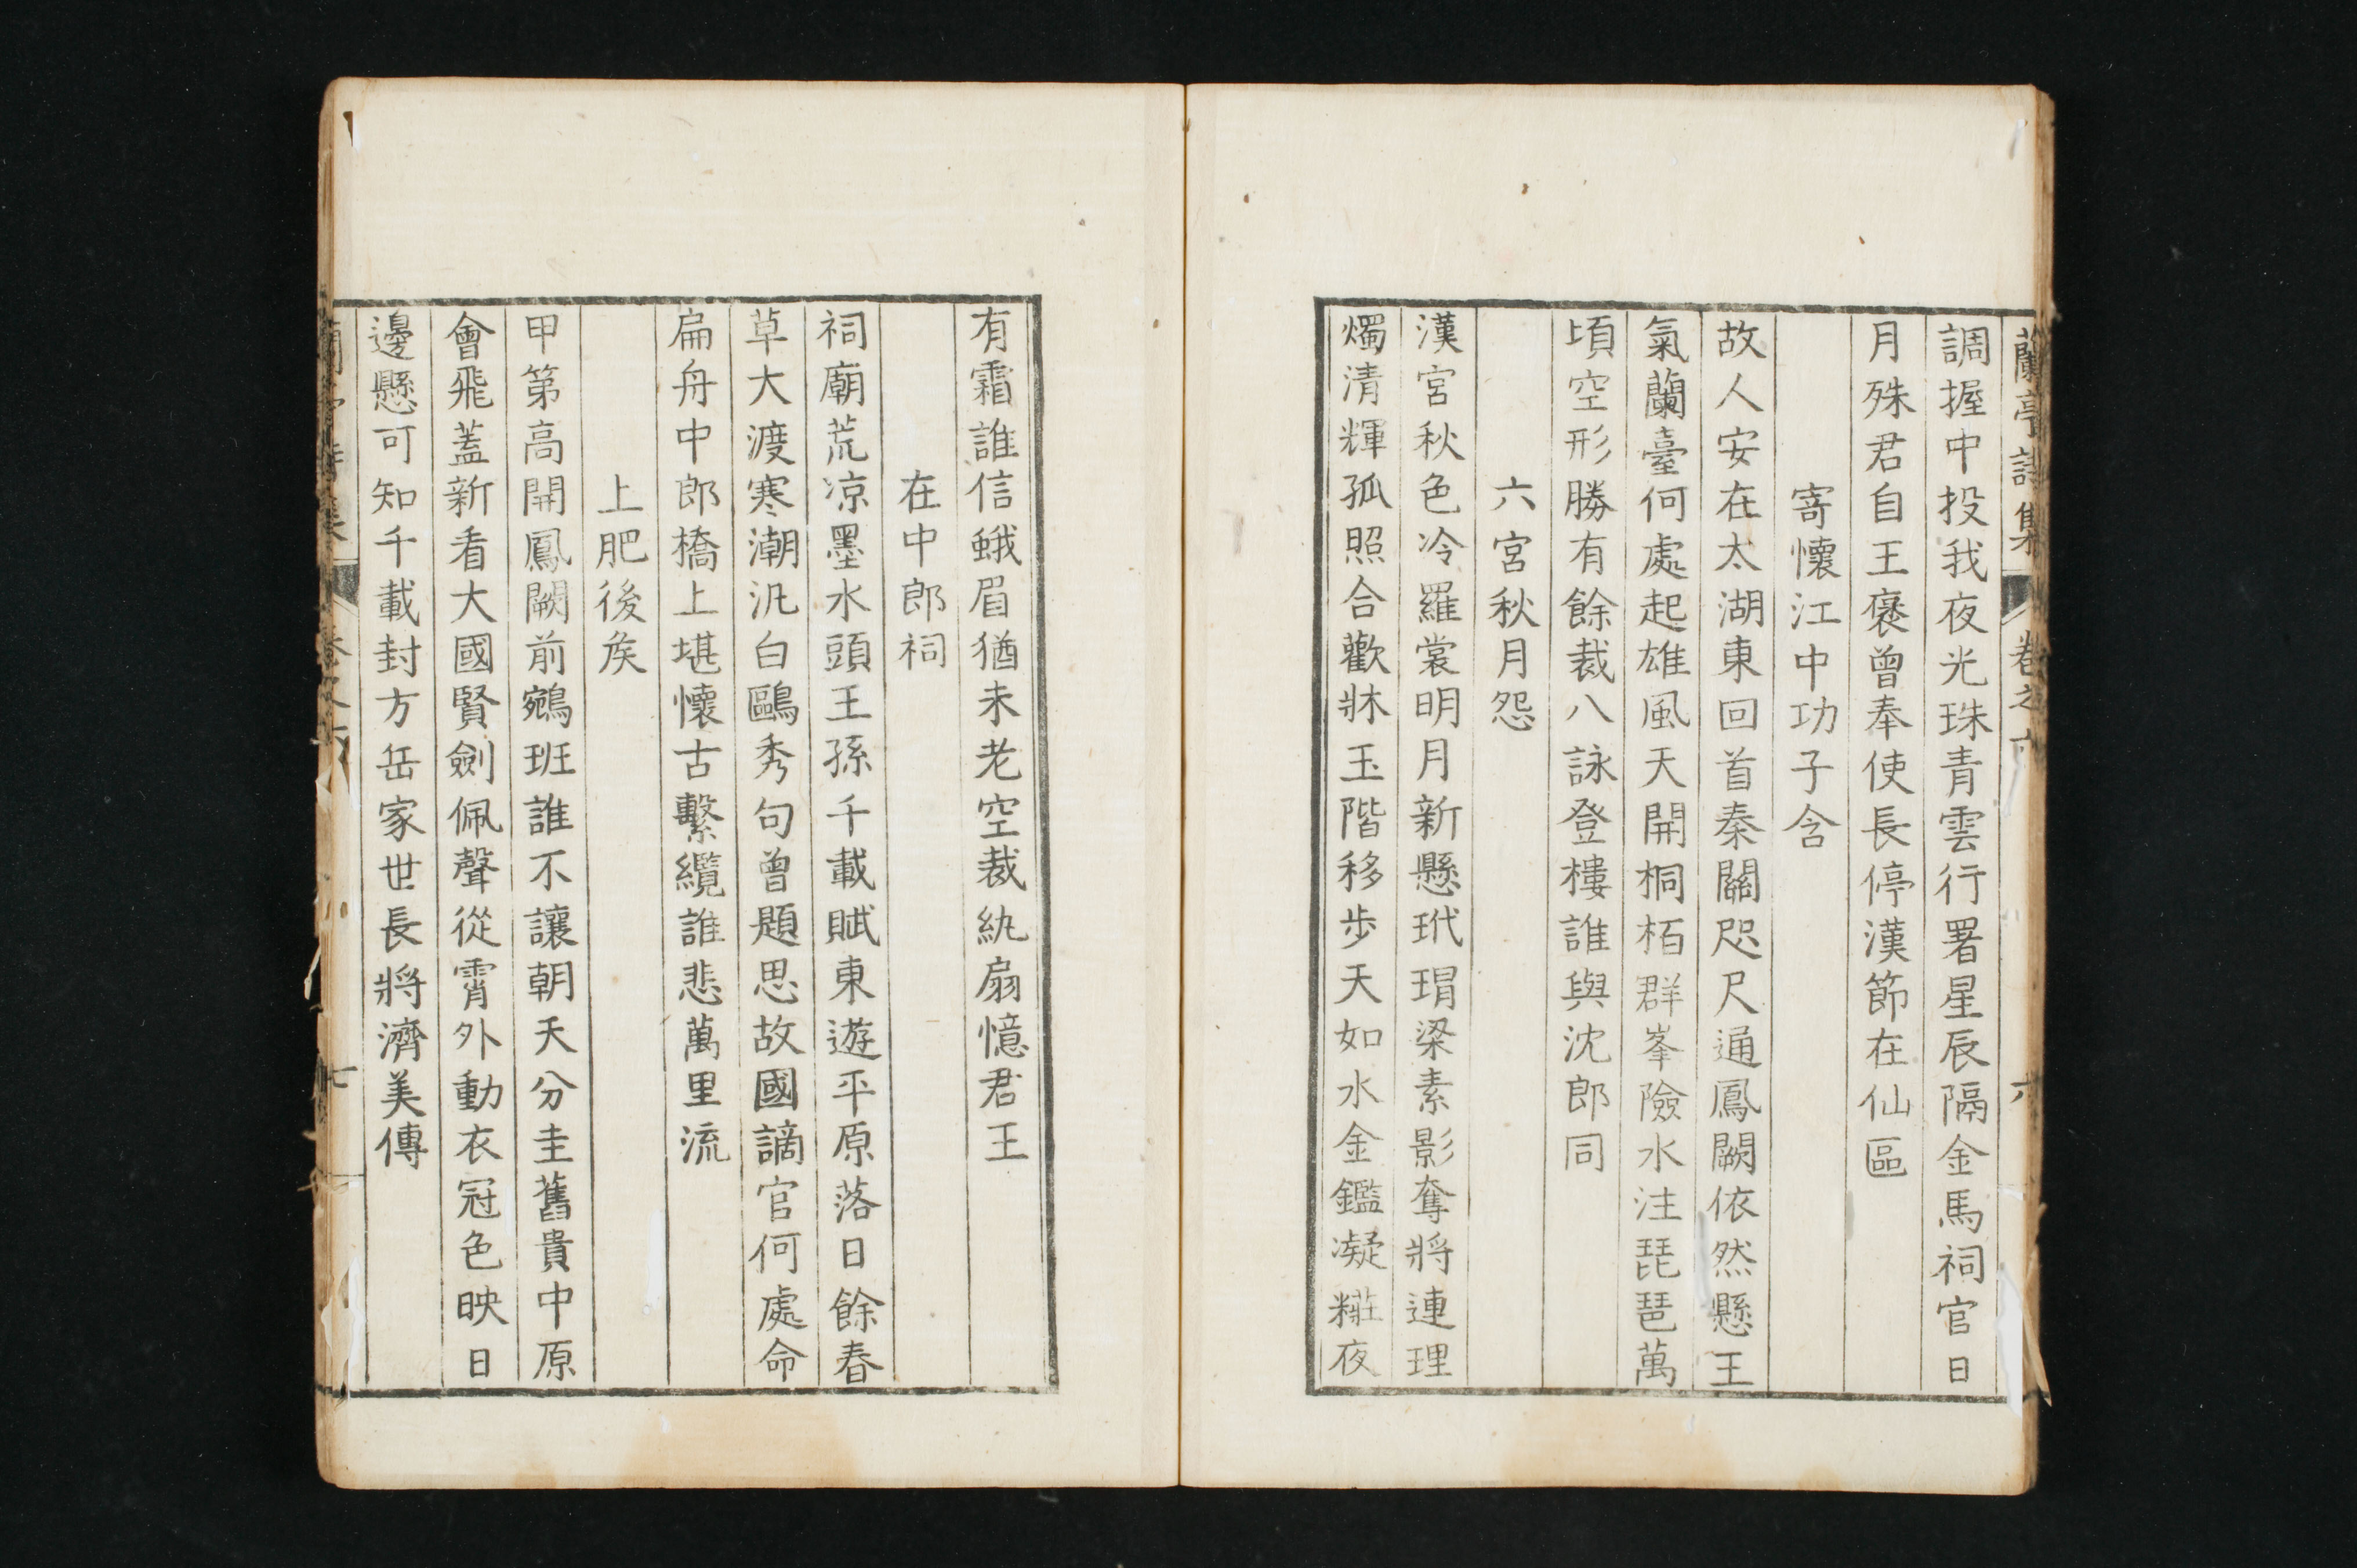 蘭亭詩集 卷之六 六
調握中投我夜光珠青雲行署星辰隔金馬祠官日
月殊君自王褒曾奉使長停漢節在仙區
寄懷江中功子含
故人安在太湖東回首秦關咫尺通鳳闕依然懸王
氣蘭臺何處起雄風天開桐栢群峯險水注琵琶萬
頃空形勝有餘裁八詠登樓誰與沈郎同
六宮秋月怨
漢宮秋色冷羅裳明月新懸玳瑁梁素影奪將連理
燭清輝孤照合歡牀玉階移步天如水金鑑凝糚夜
有霜誰信蛾眉猶未老空裁紈扇憶君王
在中郎祠
祠廟荒凉墨水頭王孫千載賦東遊平原落日餘春
草大渡寒潮汎白鷗秀句曾題思故國謫官何處命
扁舟中郎橋上堪懷古繫纜誰悲萬里流
上肥後矦
甲第高開鳳闕前鵷班誰不讓朝天分圭舊貴中原
會飛蓋新看大國賢劍佩聲從霄外動衣冠色映日
邊懸可知千載封方岳家世長將濟美傳
七